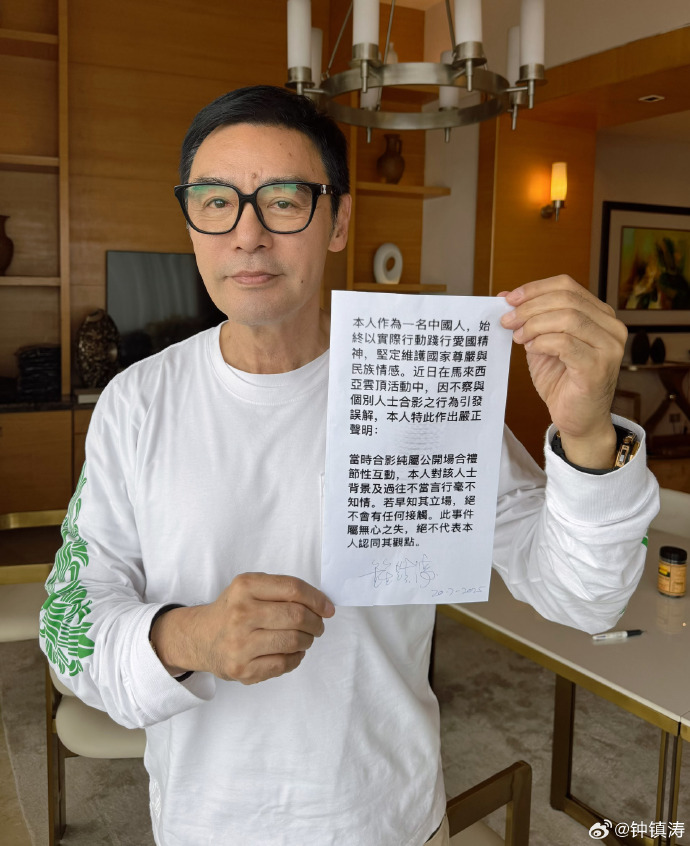 本人作為一名中國人，始
終以實際行動踐行愛國精
神，堅定維護國家尊嚴與
民族情感。近日在馬來西
亞雲頂活動中，因不察與
個別人士合影之行為引發
誤解，本人特此作出嚴正
聲明：
當時合影純屬公開場合禮
節性互動，本人對該人士
背景及過往不當言行毫不
知情。若早知其立場，絕
不會有任何接觸。此事件
屬無心之失，絕不代表本
人認同其觀點。
20-7-2025
@钟镇涛